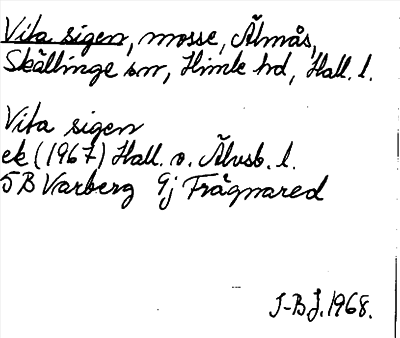 Vita sigen, mosse, Älmås,
Skällinge sn, Himle hd, Hall. l.
Vita sigen
ek (1967) Hall. o. Älvsb. l.
5B Varberg 9j Frågnared
J-B J. 1968.